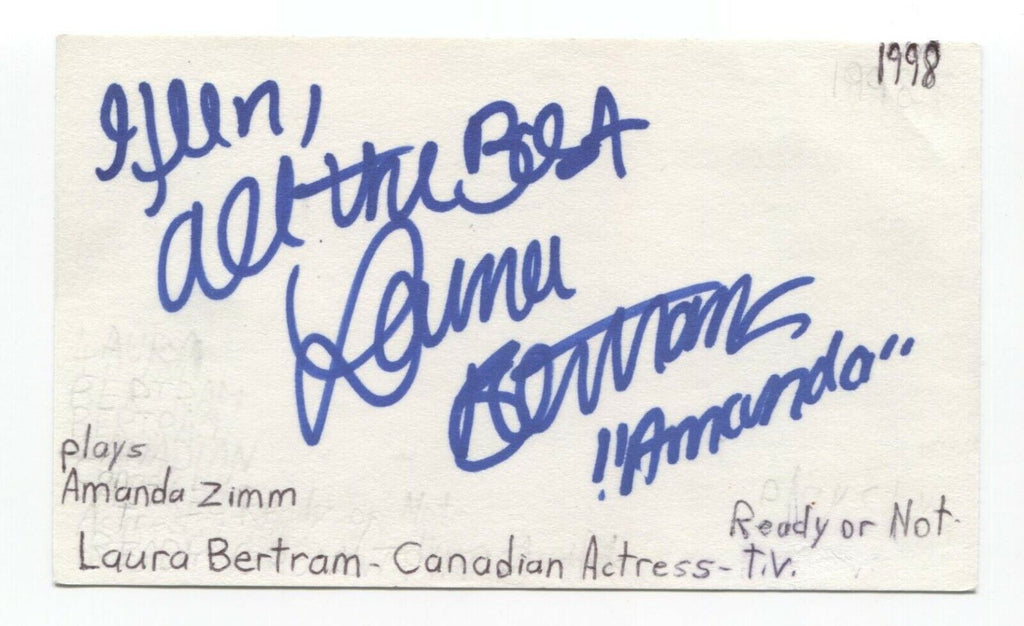 1998
Glen,
All the Best
Laura
Bertram
"Amanda"
plays
Amanda Zimm
Ready or Not
Laura Bertram - Canadian Actress - T.V.